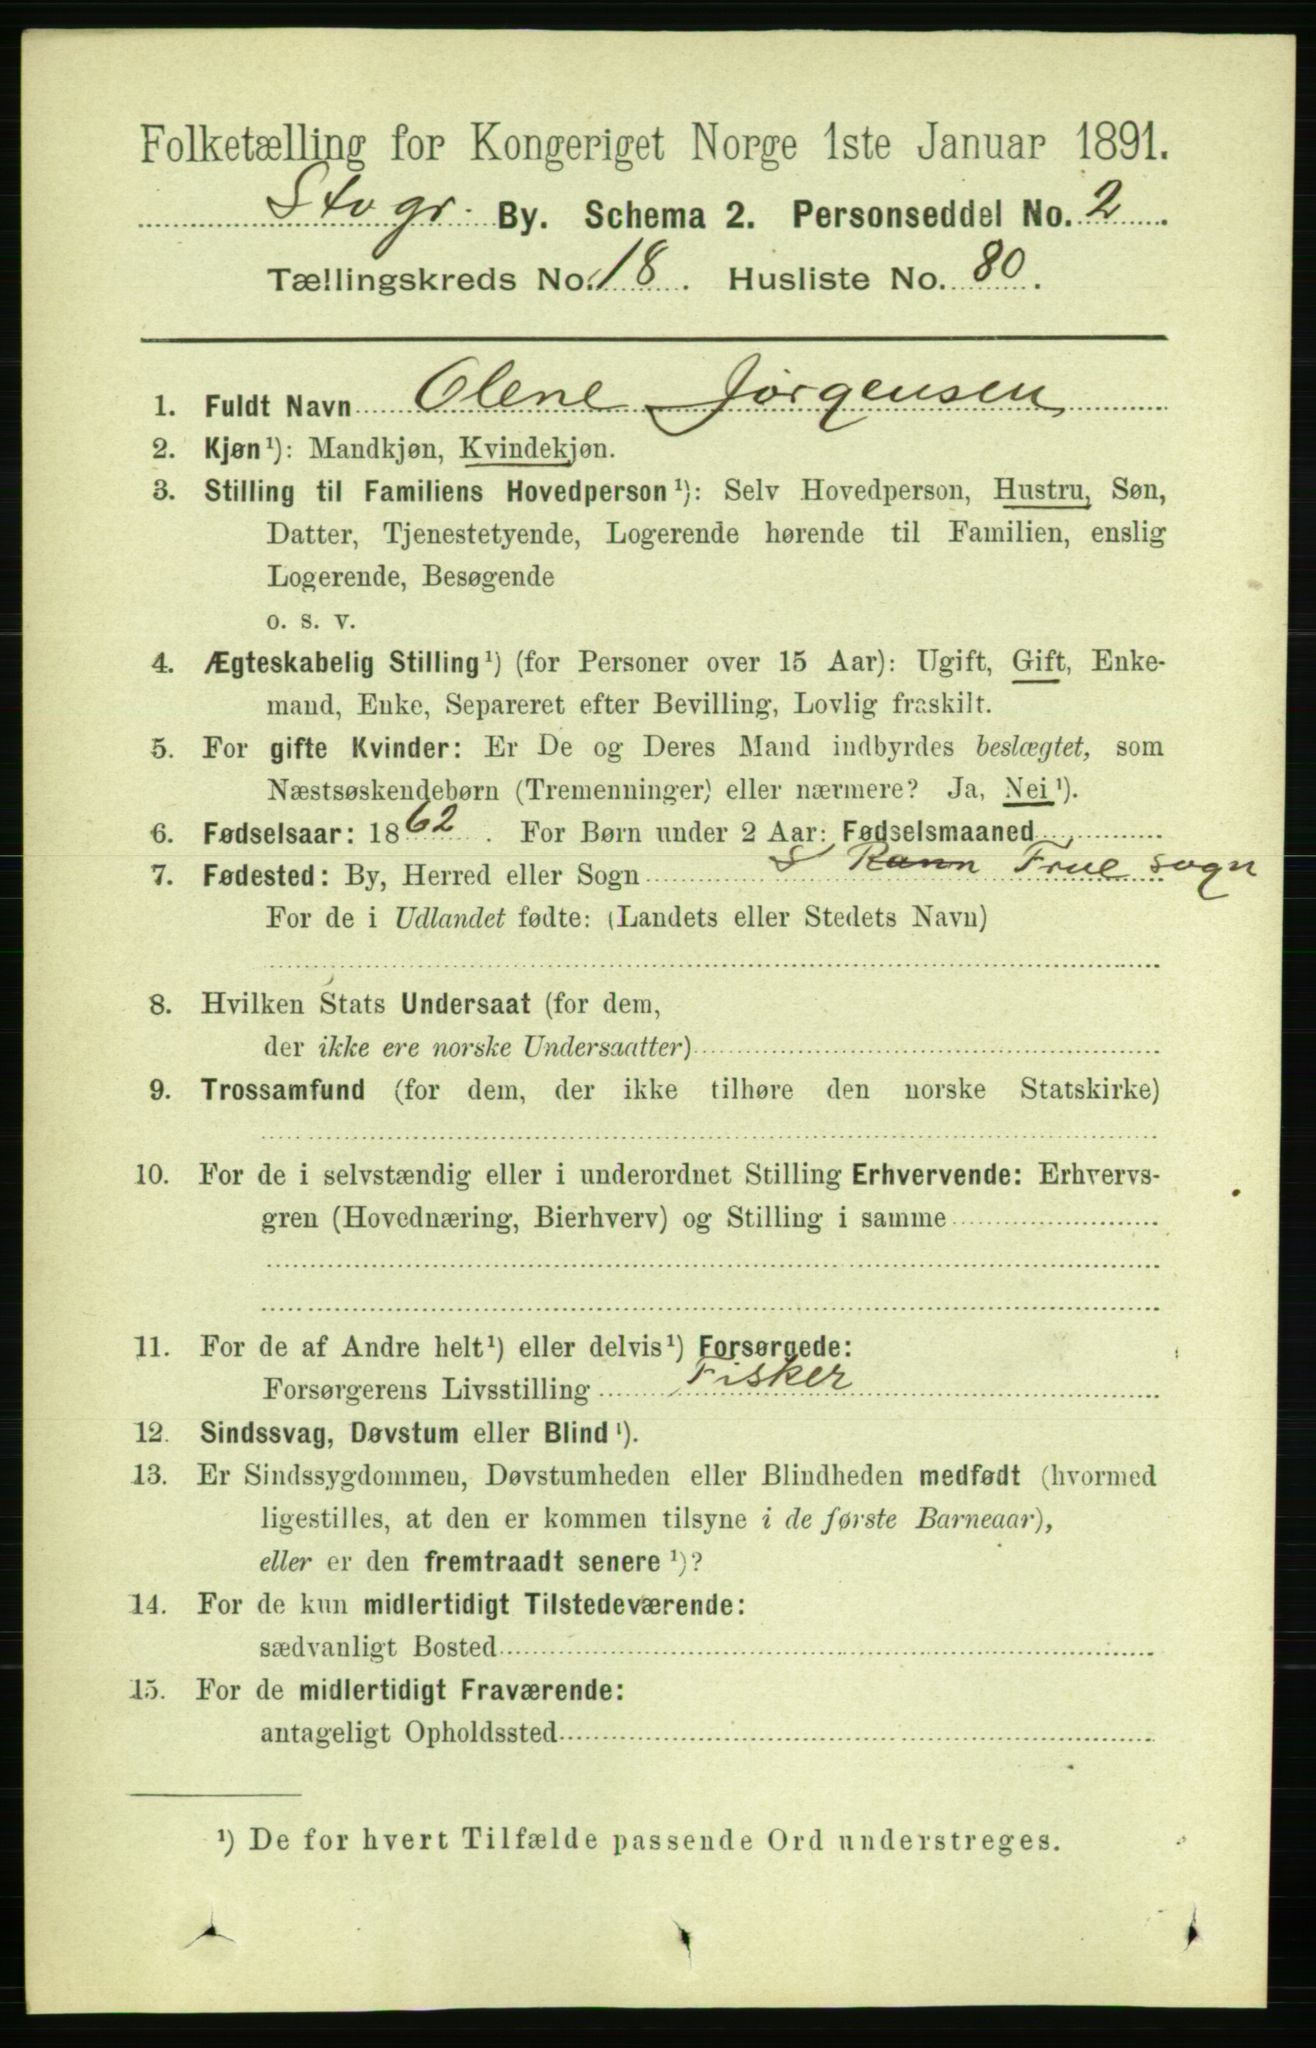 Folketælling for Kongeriget Norge 1ste Januar 1891.
Stvgr. By. Schema 2. Personseddel No. 2.
Tællingskreds No. 18. Husliste No. 80.
1. Fuldt Navn Olene Jørgensen
2. Kjøn¹): Mandkjøn, Kvindekjøn.
3. Stilling til Familiens Hovedperson¹): Selv Hovedperson, Hustru, Søn,
Datter, Tjenestetyende, Logerende hørende til Familien, enslig
Logerende, Besøgende
o. s. v.
4. Ægteskabelig Stilling¹) (for Personer over 15 Aar): Ugift, Gift, Enke-
mand, Enke, Separeret efter Bevilling, Lovlig fraskilt.
5. For gifte Kvinder: Er De og Deres Mand indbyrdes beslægtet, som
Næstsøskendebørn (Tremenninger) eller nærmere? Ja, Nei¹).
6. Fødselsaar: 1862. For Børn under 2 Aar: Fødselsmaaned
7. Fødested: By, Herred eller Sogn Frue sogn
For de i Udlandet fødte: (Landets eller Stedets Navn)
8. Hvilken Stats Undersaat (for dem,
der ikke ere norske Undersaatter)
9. Trossamfund (for dem, der ikke tilhøre den norske Statskirke)
10. For de i selvstændig eller i underordnet Stilling Erhvervende: Erhvervs-
gren (Hovednæring, Bierhverv) og Stilling i samme
11. For de af Andre helt¹) eller delvis¹) Forsørgede:
Forsørgerens Livsstilling Fisker
12. Sindssvag, Døvstum eller Blind¹).
13. Er Sindssygdommen, Døvstumheden eller Blindheden medfødt (hvormed
ligestilles, at den er kommen tilsyne i de første Barneaar),
eller er den fremtraadt senere¹)?
14. For de kun midlertidigt Tilstedeværende:
sædvanligt Bosted
15. For de midlertidigt Fraværende:
antageligt Opholdssted
¹) De for hvert Tilfælde passende Ord understreges.